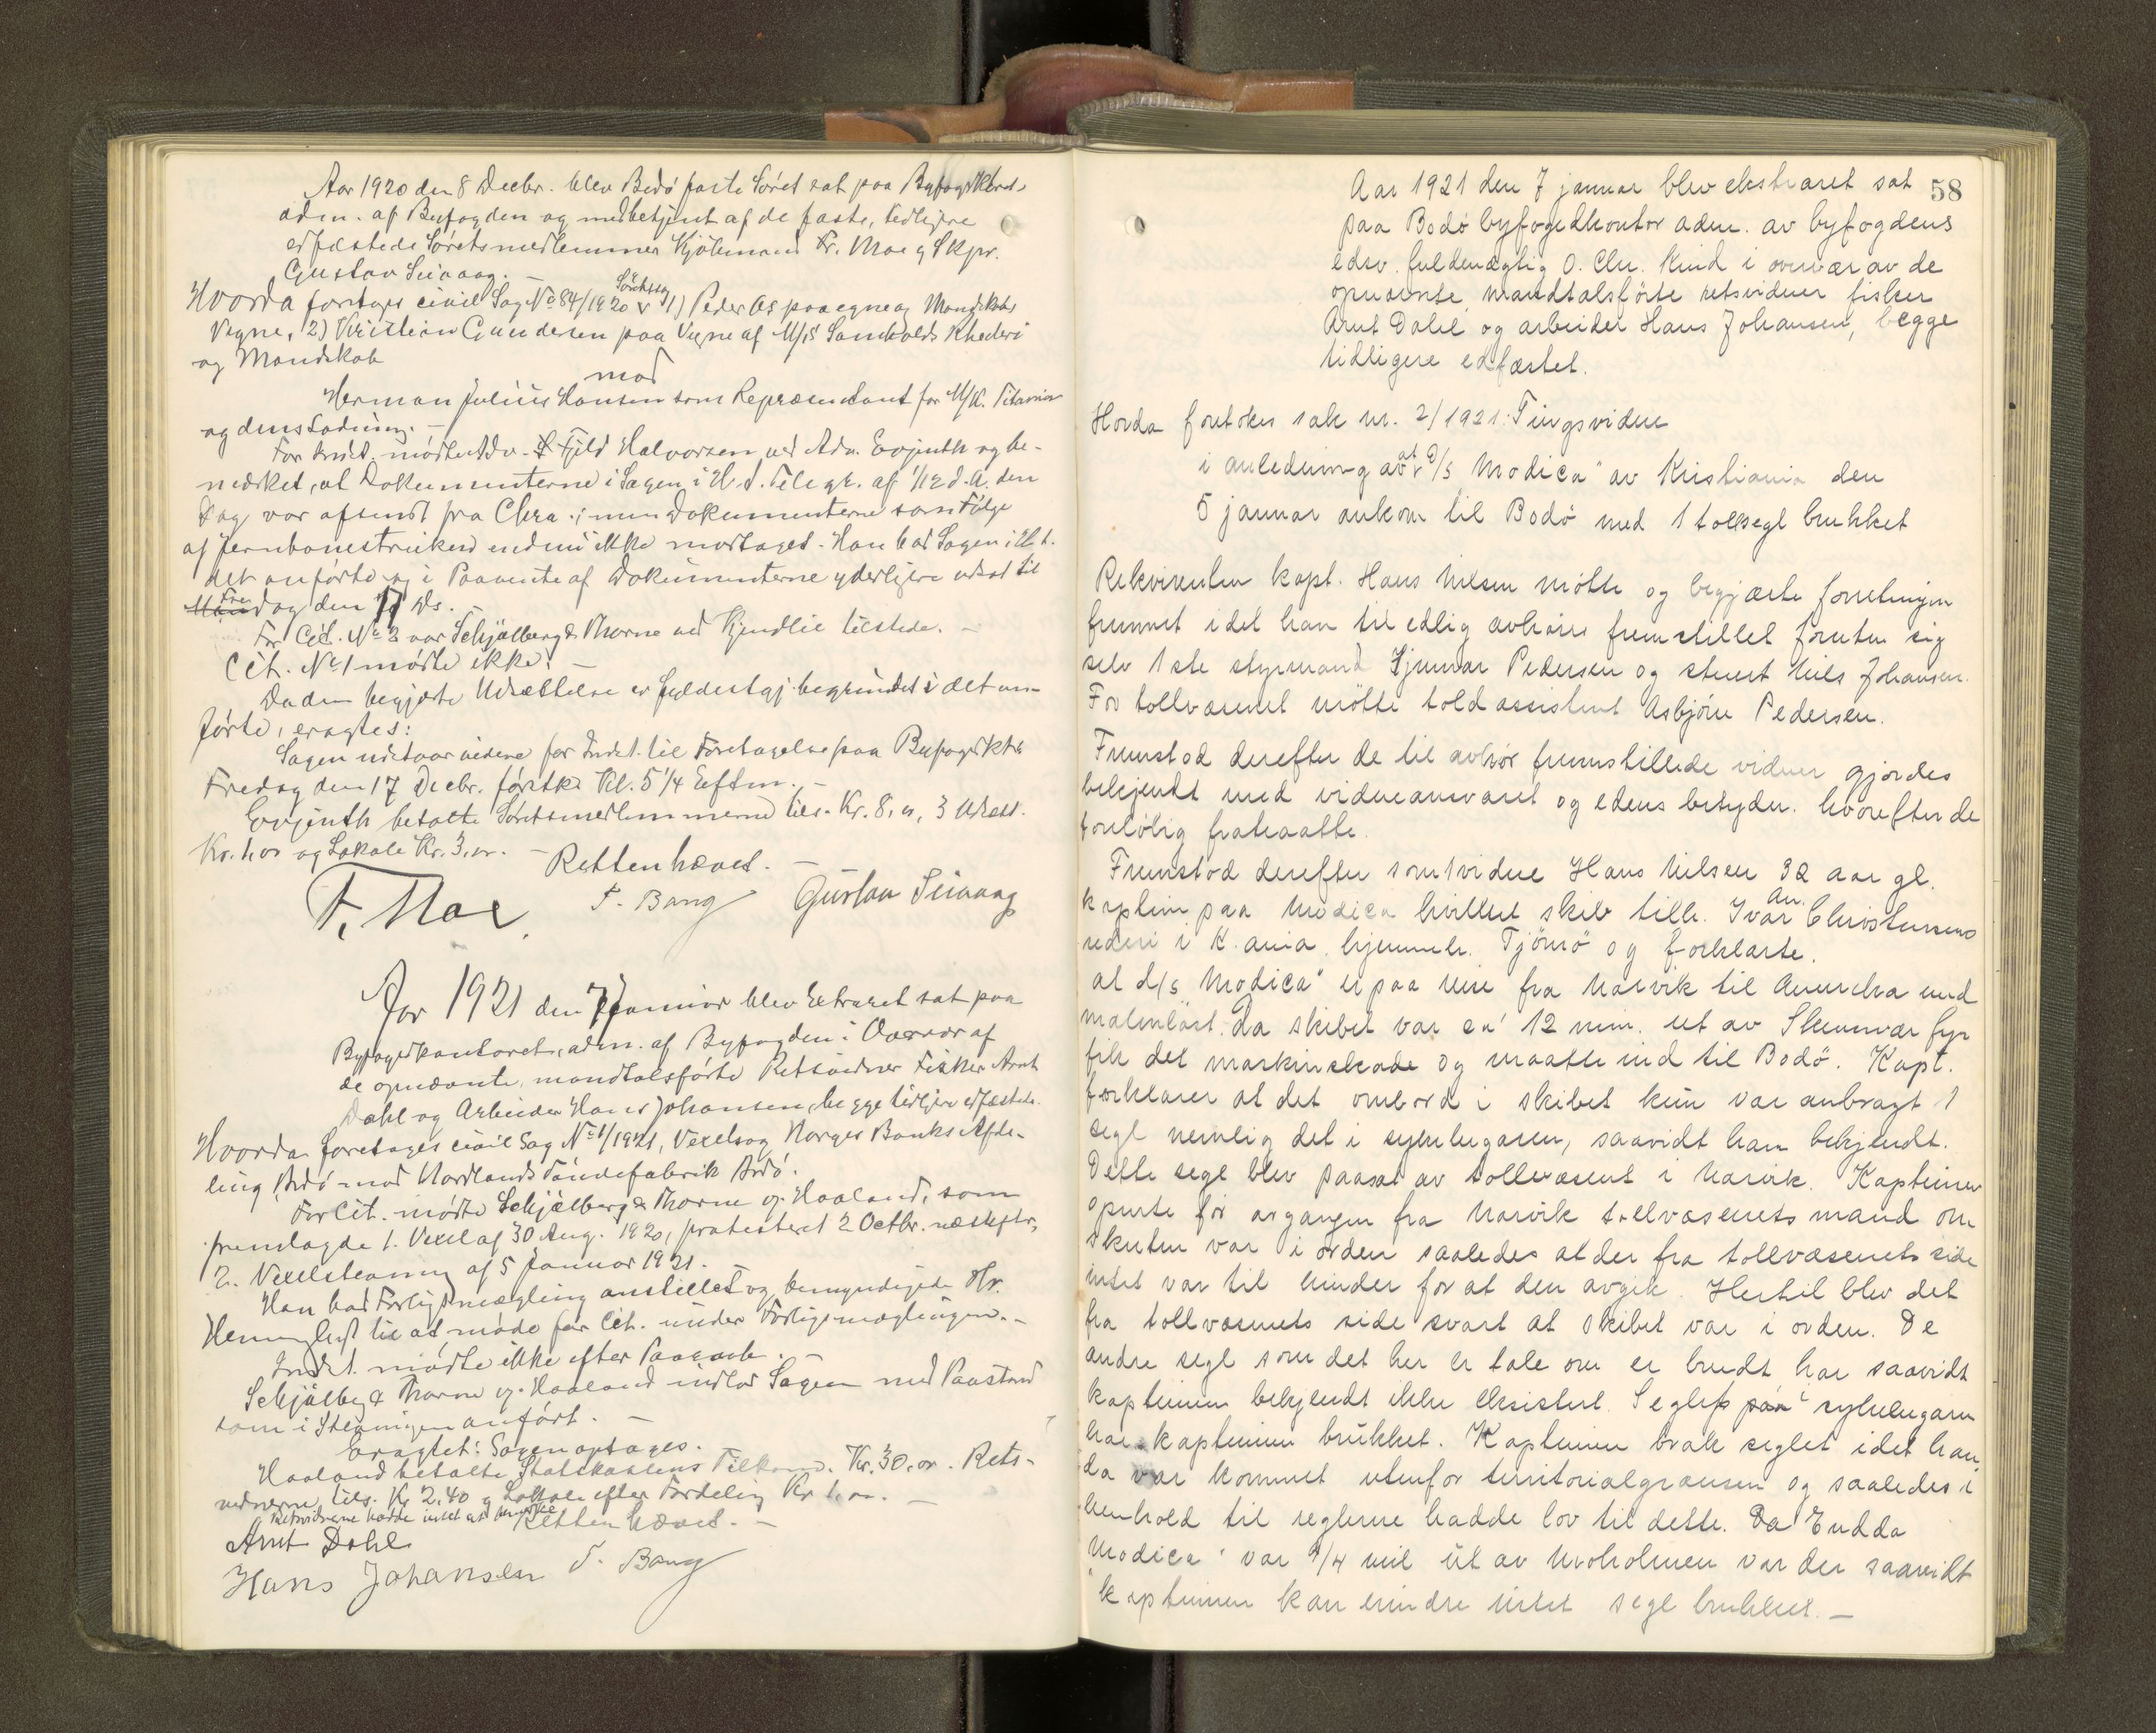 Aar 1920 den 8 Decbr. blev Bodö faste Söret sat paa Byfogdktret
adm. af Byfogden og medbetjent af de faste, tidligere
edfæstede Söretsmedlemmer Kjöbmand Fr. Moe og Skpr.
Gustav Seivaag. —
Hvorda foretoges civil Sag No 84/1920 Söretssag 1) Peder As paa egne og Mandskabs
Vegne, 2) Kristian Gundersen paa Vegne af M/S Sambolds Rhederi
og Mandskab
mod
Herman Julius Hansen som Repræsentant for M/K. Titania
og dens Ladning. —
For Indst. mødte Adv. Fjeld Halvorsen ved Adv. Evjenth og be-
mærket, at Dokumenterne i Sagen i H. t. Telegr. af 1/12 d. A. den
Dag var afsendt fra Chra.; men Dokumenterne som Følge
af Jernbanestreiken endnu ikke mottaget. Han bad Sagen i H. t.
det anførte og i Paavente af Dokumenterne yderligere udsat til
Fredag den 17 ds.
For Cit. No 2 var Schjølberg & Thorne ved Kjendlie tilstede. —
Cit. No 1 mødte ikke. —
Da den begjærte Udsættelse er fyldestgj. begrundet i det an-
førte, eragtes:
Sagen udstaar videre for Indst. til Foretagelse paa Byfogdktr.
Fredag den 17 Decbr. førstk. Kl. 5 1/4 Eftm. —
Evjenth betalte Søretsmedlemmerne tils. Kr. 8,00, 3 Udsætt.
Kr. 1,00 og Lokale Kr. 3,00. — Retten hævet. —
F. Moe F. Bang Gustav Seivaag
Aar 1921 den 7 Januar blev Extraret sat paa
Byfogedkontoret, adm. af Byfogden i Overvær af
de opnævnte, mandtalsførte Retsvidner Fisker Arnt
Dahl og Arbeider Hans Johansen, begge tidligere edfæstede.
Hvorda foretoges civil Sag No 1/1921, Vexelsag Norges Banks Afde-
ling Bodö mod Nordlands Tøndefabrik Bodö.
For Cit. mødte Schjølberg & Thorne v. Haaland, som
fremlagde 1. Vexel af 30 Aug. 1920, protesteret 2 Octbr. næstefter,
2. Vexelstevning af 5 Januar 1921.
Han bad Forligsmægling anstillet og bemyndigede Hr.
til at møde for Cit. under Forligsmæglingen. —
Indst. mødte ikke efter Paaraab. —
Schjølberg & Thorne v. Haaland indlod Sagen med Paastand
som i Stevningen anført. —
Eragtet: Sagen optages.
Haaland betalte Statskassens Tilkom. Kr. 30,00. Rets-
vidnerne tils. Kr 2,40 og Lokale efter Fordeling Kr 1,00. —
Retsvidnerne hadde intet at bemerke. Retten hævet. —
Arnt Dahl
Hans Johansen F. Bang
58
Aar 1921 den 7 januar blev ekstraret sat
paa Bodö byfogedkontor adm. av byfogdens
edsv. fuldmægtig O. Chr. Kind i overvær av de
opnævnte mandtalsförte retsvidner fisker
Arnt Dahl og arbeider Hans Johansen, begge
tidligere edfæstet.
Hvorda foretokes sak nr. 2/1921: Tingsvidne
i anledning av at d/s "Modica" av Kristiania den
5 januar ankom til Bodö med 1 toldsegl brukket
Rekvirenten kapt. Hans Nilsen mötte og begjærte forretningen
fremmet idet han til edlig avhöre fremstillet foruten sig
selv 1ste styrmand Hjalmar Pedersen og stuert Nils Johansen.
For tollvæsenet mötte toldassistent Asbjörn Pedersen.
Fremstod derefter de til avhör fremstillede vidner gjordes
bekjendt med vidneansvaret og edens betydn. hvorefter de
forelöbig fratraatte.
Fremstod derefter som 1 vidne Hans Nilsen 32 aar gl.
kaptein paa Modica hvilket skib tilh. Ivar An. Christensens
rederi i K.ania, hjemmeh. Tjömö og forklarte.
at d/s "Modica" er paa reise fra Narvik til Amerika med
malmlast. Da skibet var ca 12 min. ut av Skomvær fyr
fik det maskinskade og maatte ind til Bodö. Kapt.
forklarer at det ombord i skibet kun var anbragt 1
segl nemlig det i sykelugaren, saavidt ham bekjendt.
Dette segl blev paasat av tollvæsenet i Narvik. Kapteinen
spurte för avgangen fra Narvik tollvæsenets mand om
skuten var i orden saaledes at der fra tollvæsenets side
intet var til hinder for at den avgik. Hertil blev det
fra tollvæsenets side svart at skibet var i orden. De
andre segl som det her er tale om er brudt har saavidt
kapteinen bekjendt ikke eksistert. Seglet paa sykelugaren
har kapteinen brukket. Kapteinen brak seglet idet han
da var kommet utenfor territorialgrænsen og saaledes i
henhold til reglerne hadde lov til dette. Endda
"Modica" var 3/4 mil ut av var der saavidt
kapteinen kan erindre intet segl brukket. —